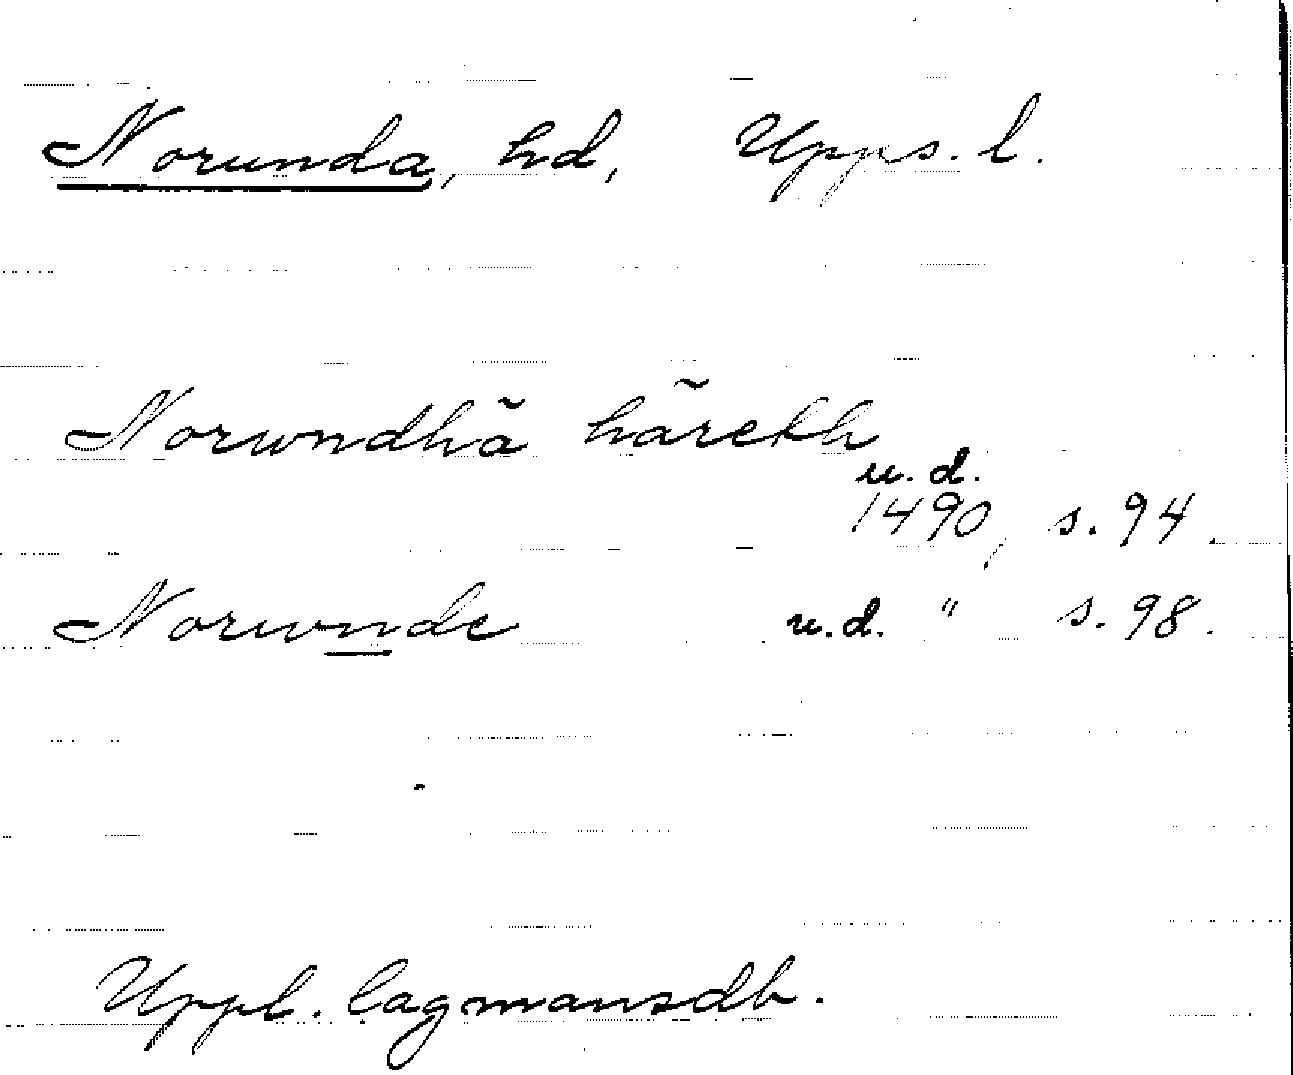 Norunda, hd, Upps. l.
Norwndhã hãrekh
u. d.
1490, s. 94.
Norwnde u. d. " s. 98.
Uppl. lagmansdb.